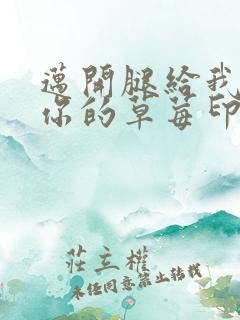 邁開腿給我
你的草莓印
莊主權
未经同意禁止转载